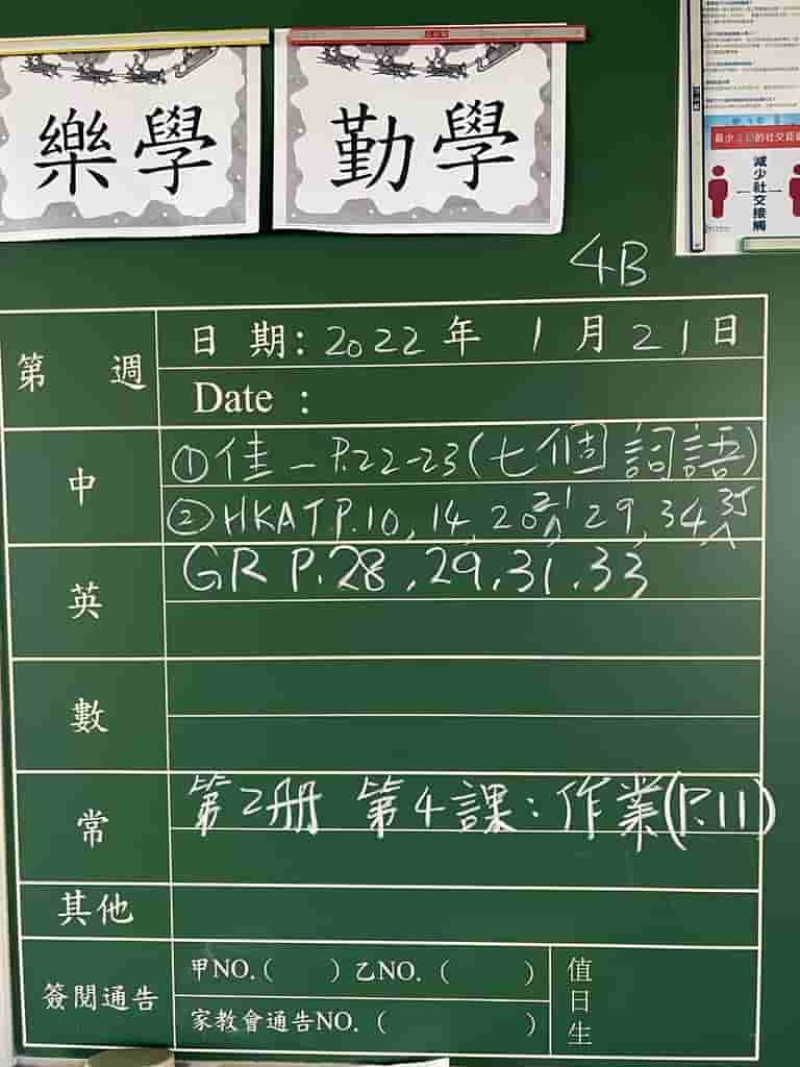 樂學
勤學
減少社交接觸
4B
第 週
日 期: 2022 年 1 月 21 日
Date :
中
①佳一 P.22-23(七個詞語)
②HKAT P.10, 14, 20, 21, 29, 34, 35
英
GR P.28, 29, 31, 33
數
常
第2册 第4課:作業(P.11)
其他
簽閱通告
甲NO.( ) 乙NO. ( )
家教會通告NO. ( )
值日生